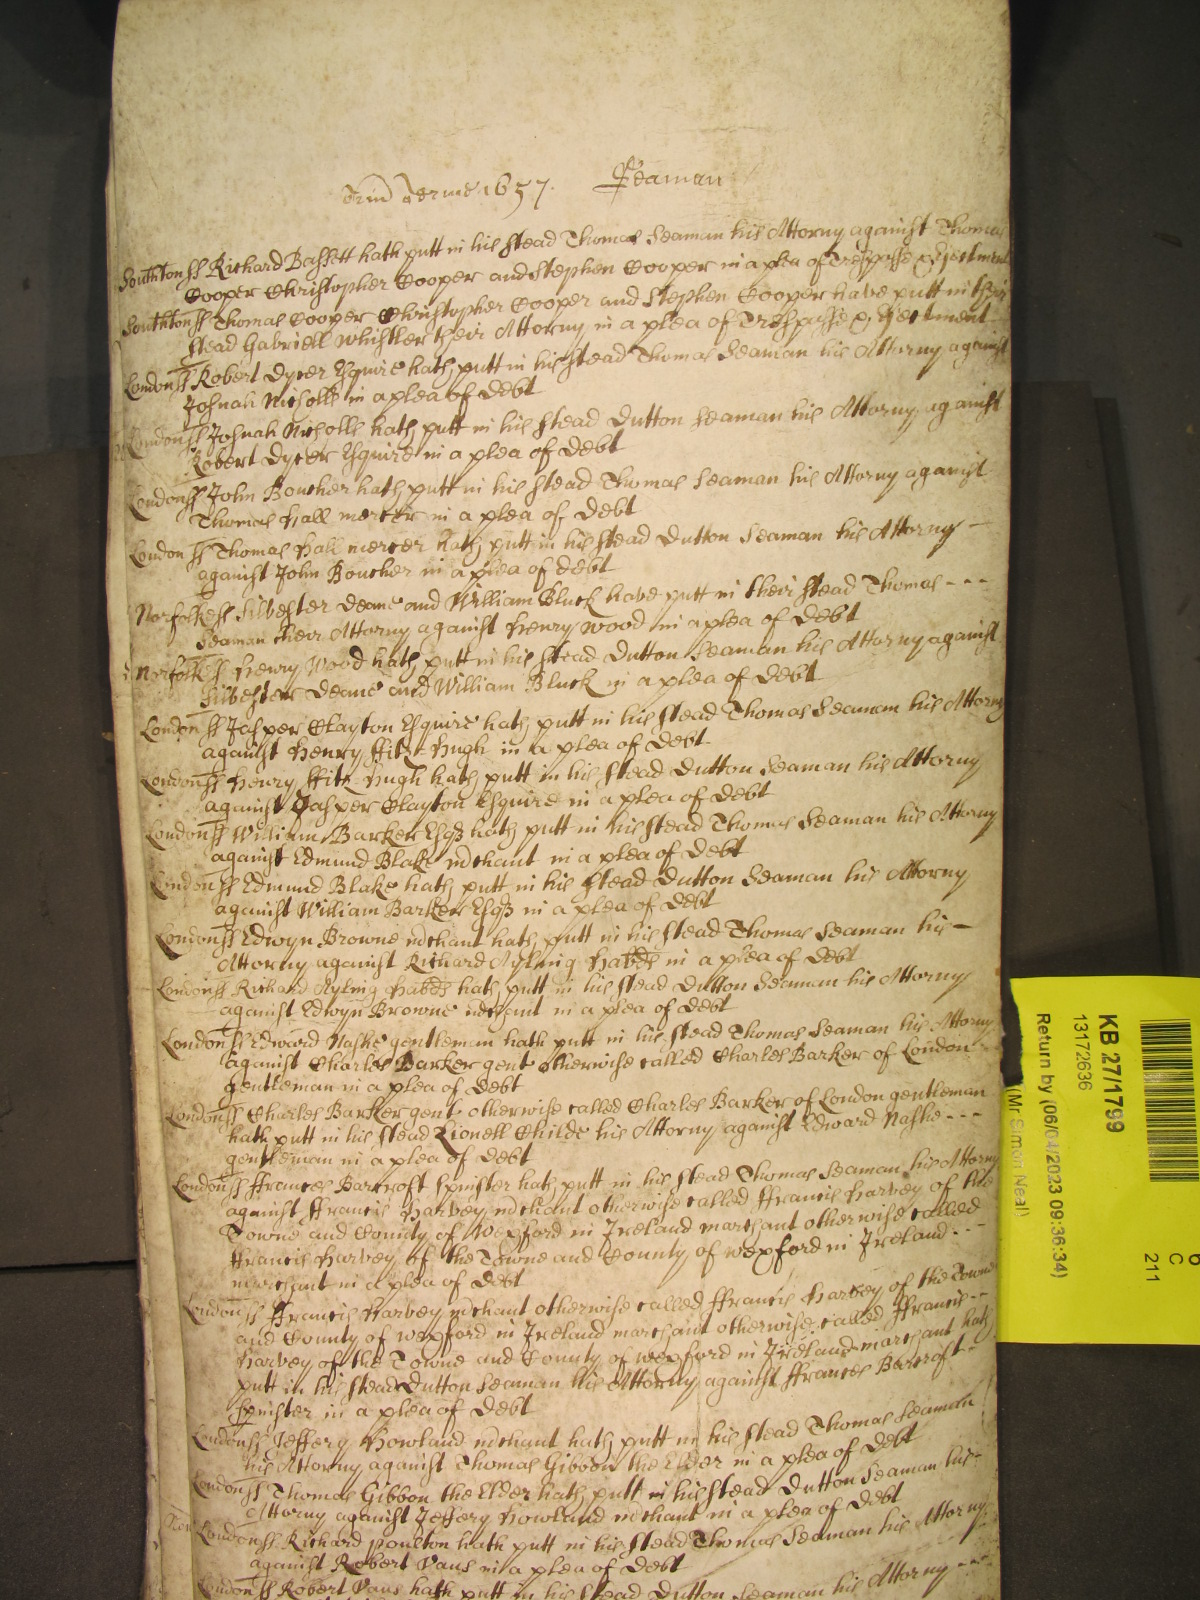 Trin Terme 1657. Seaman
Southton ss Richard Bassett hath putt in his stead Thomas Seaman his Attorny against Thomas
Cooper Christopher Cooper and Stephen Cooper in a plea of Trespasse & Ejectment
Southton ss Thomas Cooper Christopher Cooper and Stephen Cooper have putt in their
stead Gabriell Whistler their Attorny in a plea of Trespasse & Ejectment
London ss Robert Dycer Esquire hath putt in his stead Thomas Seaman his Attorny against
Josuah Nicholls in a plea of Debt
London ss Josuah Nicholls hath putt in his stead Dutton Seaman his Attorny against
Robert Dycer Esquire in a plea of Debt
London ss John Boucher hath putt in his stead Thomas Seaman his Attorny against
Thomas Hall mercer in a plea of Debt
London ss Thomas Hall mercer hath putt in his stead Dutton Seaman his Attorny -
against John Boucher in a plea of debt
Norfolke ss Silvester Deane and William Bluck have putt in their stead Thomas - - -
Seaman their Attorny against Henry Wood in a plea of Debt
Norfolk ss Henry Wood hath putt in his stead Dutton Seaman his Attorny against
Silvester Deane and William Bluck in a plea of Debt
London ss Jasper Clayton Esquire hath putt in his stead Thomas Seaman his Attorny
against Henry ffitz-Hugh in a plea of Debt
London ss Henry ffitz-Hugh hath putt in his stead Dutton Seaman his Attorny
against Jasper Clayton Esquire in a plea of Debt
London ss William Barker Esqr hath putt in his stead Thomas Seaman his Attorny
against Edmund Blake mchant in a plea of Debt
London ss Edmund Blake hath putt in his stead Dutton Seaman his Attorny
against William Barker Esqr in a plea of Debt
London ss Edwyn Browne mchant hath putt in his stead Thomas Seaman his -
Attorny against Richard Ayling in a plea of Debt
London ss Richard Ayling hath putt in his stead Dutton Seaman his Attorny
against Edwyn Browne mchant in a plea of Debt
London ss Edward Nashe gentleman hath putt in his stead Thomas Seaman his Attorny
against Charles Barker gent otherwise called Charles Barker of London
gentleman in a plea of Debt
London ss Charles Barker gent otherwise called Charles Barker of London gentleman
hath putt in his stead Lionell Childe his Attorny against Edward Nashe - - -
gentleman in a plea of Debt
London ss ffrances Barcroft Spinster hath putt in his stead Thomas Seaman his Attorny
against ffrancis Harvey mchant otherwise called ffrancis Harvey of the
Towne and County of Wexford in Ireland marchant otherwise called
ffrancis Harvey of the Towne and County of Wexford in Ireland - - -
marchant in a plea of Debt
London ss ffrancis Harvey mchant otherwise called ffrancis Harvey of the Towne
and County of Wexford in Ireland marchant otherwise called ffrancis - -
Harvey of the Towne and County of Wexford in Ireland marchant hath
putt in his stead Dutton Seaman his Attorny against ffrances Barcroft -
Spinster in a plea of Debt
London ss Jeffery Howland mchant hath putt in his stead Thomas Seaman
his Attorny against Thomas Gibbon the Elder in a plea of Debt
London ss Thomas Gibbon the Elder hath putt in his stead Dutton Seaman his -
Attorny against Jeffery Howland mchant in a plea of Debt
London ss Richard Poulton hath putt in his stead Thomas Seaman his Attorny
against Robert Vaus in a plea of Debt
London ss Robert Vaus hath putt in his stead Dutton Seaman his Attorny - - -
KB 27/1799
13172636
Return by (06/04/2023 09:36:34)
(Mr Simon Neal)
6
C
211